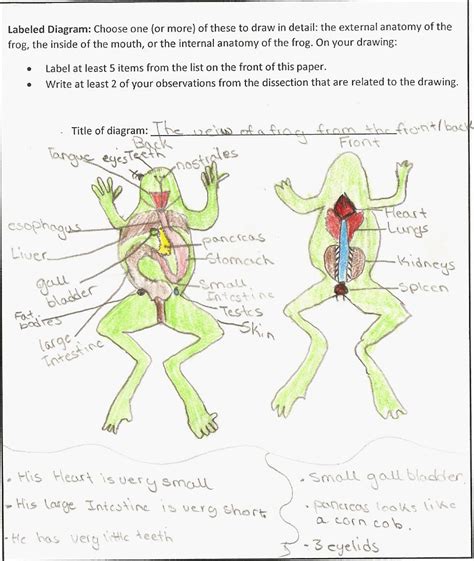 Labeled Diagram: Choose one (or more) of these to draw in detail: the external anatomy of the
frog, the inside of the mouth, or the internal anatomy of the frog. On your drawing:
• Label at least 5 items from the list on the front of this paper.
• Write at least 2 of your observations from the dissection that are related to the drawing.
Title of diagram: The veiw of a frog from the front/back
Back
Front
Tangue eyes Teeth nostrales
esophagus
Liver
gall
bladder
Fat
bodies
large
Intestine
pancreas
Stomach
Small
Intestine
Testes
Skin
Heart
Lungs
Kidneys
Spleen
• His Heart is very small
- His large Intestine is very short
- He has very little teeth
• Small gall bladder
• pancreas looks like
a corn cob.
- 3 eyelids